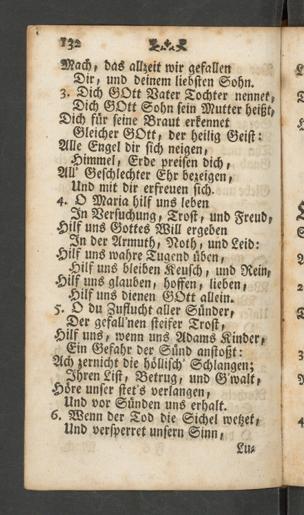 132
Mach, das allzeit wir gefallen
Dir, und deinem liebsten Sohn.
3. Dich GOtt Vater Tochter nennet,
Dich GOtt Sohn sein Mutter heißt,
Dich für seine Braut erkennet
Gleicher GOtt, der heilig Geist:
Alle Engel dir sich neigen,
Himmel, Erde preisen dich,
All' Geschlechter Ehr bezeigen,
Und mit dir erfreuen sich.
4. O Maria hilf uns leben
In Versuchung, Trost, und Freud,
Hilf uns Gottes Will ergeben
In der Armuth, Noth, und Leid:
Hilf uns wahre Tugend üben,
Hilf uns bleiben Keusch, und Rein,
Hilf uns glauben, hoffen, lieben,
Hilf uns dienen GOtt allein.
5. O du Zuflucht aller Sünder,
Der gefall'nen steifer Trost,
Hilf uns, wenn uns Adams Kinder,
Ein Gefahr der Sünd anstoßt:
Ach zernicht die höllisch' Schlangen;
Ihren List, Betrug, und G'walt,
Höre unser stet's verlangen,
Und vor Sünden uns erhalt.
6. Wenn der Tod die Sichel wetzet,
Und versperret unsern Sinn,
Lu-